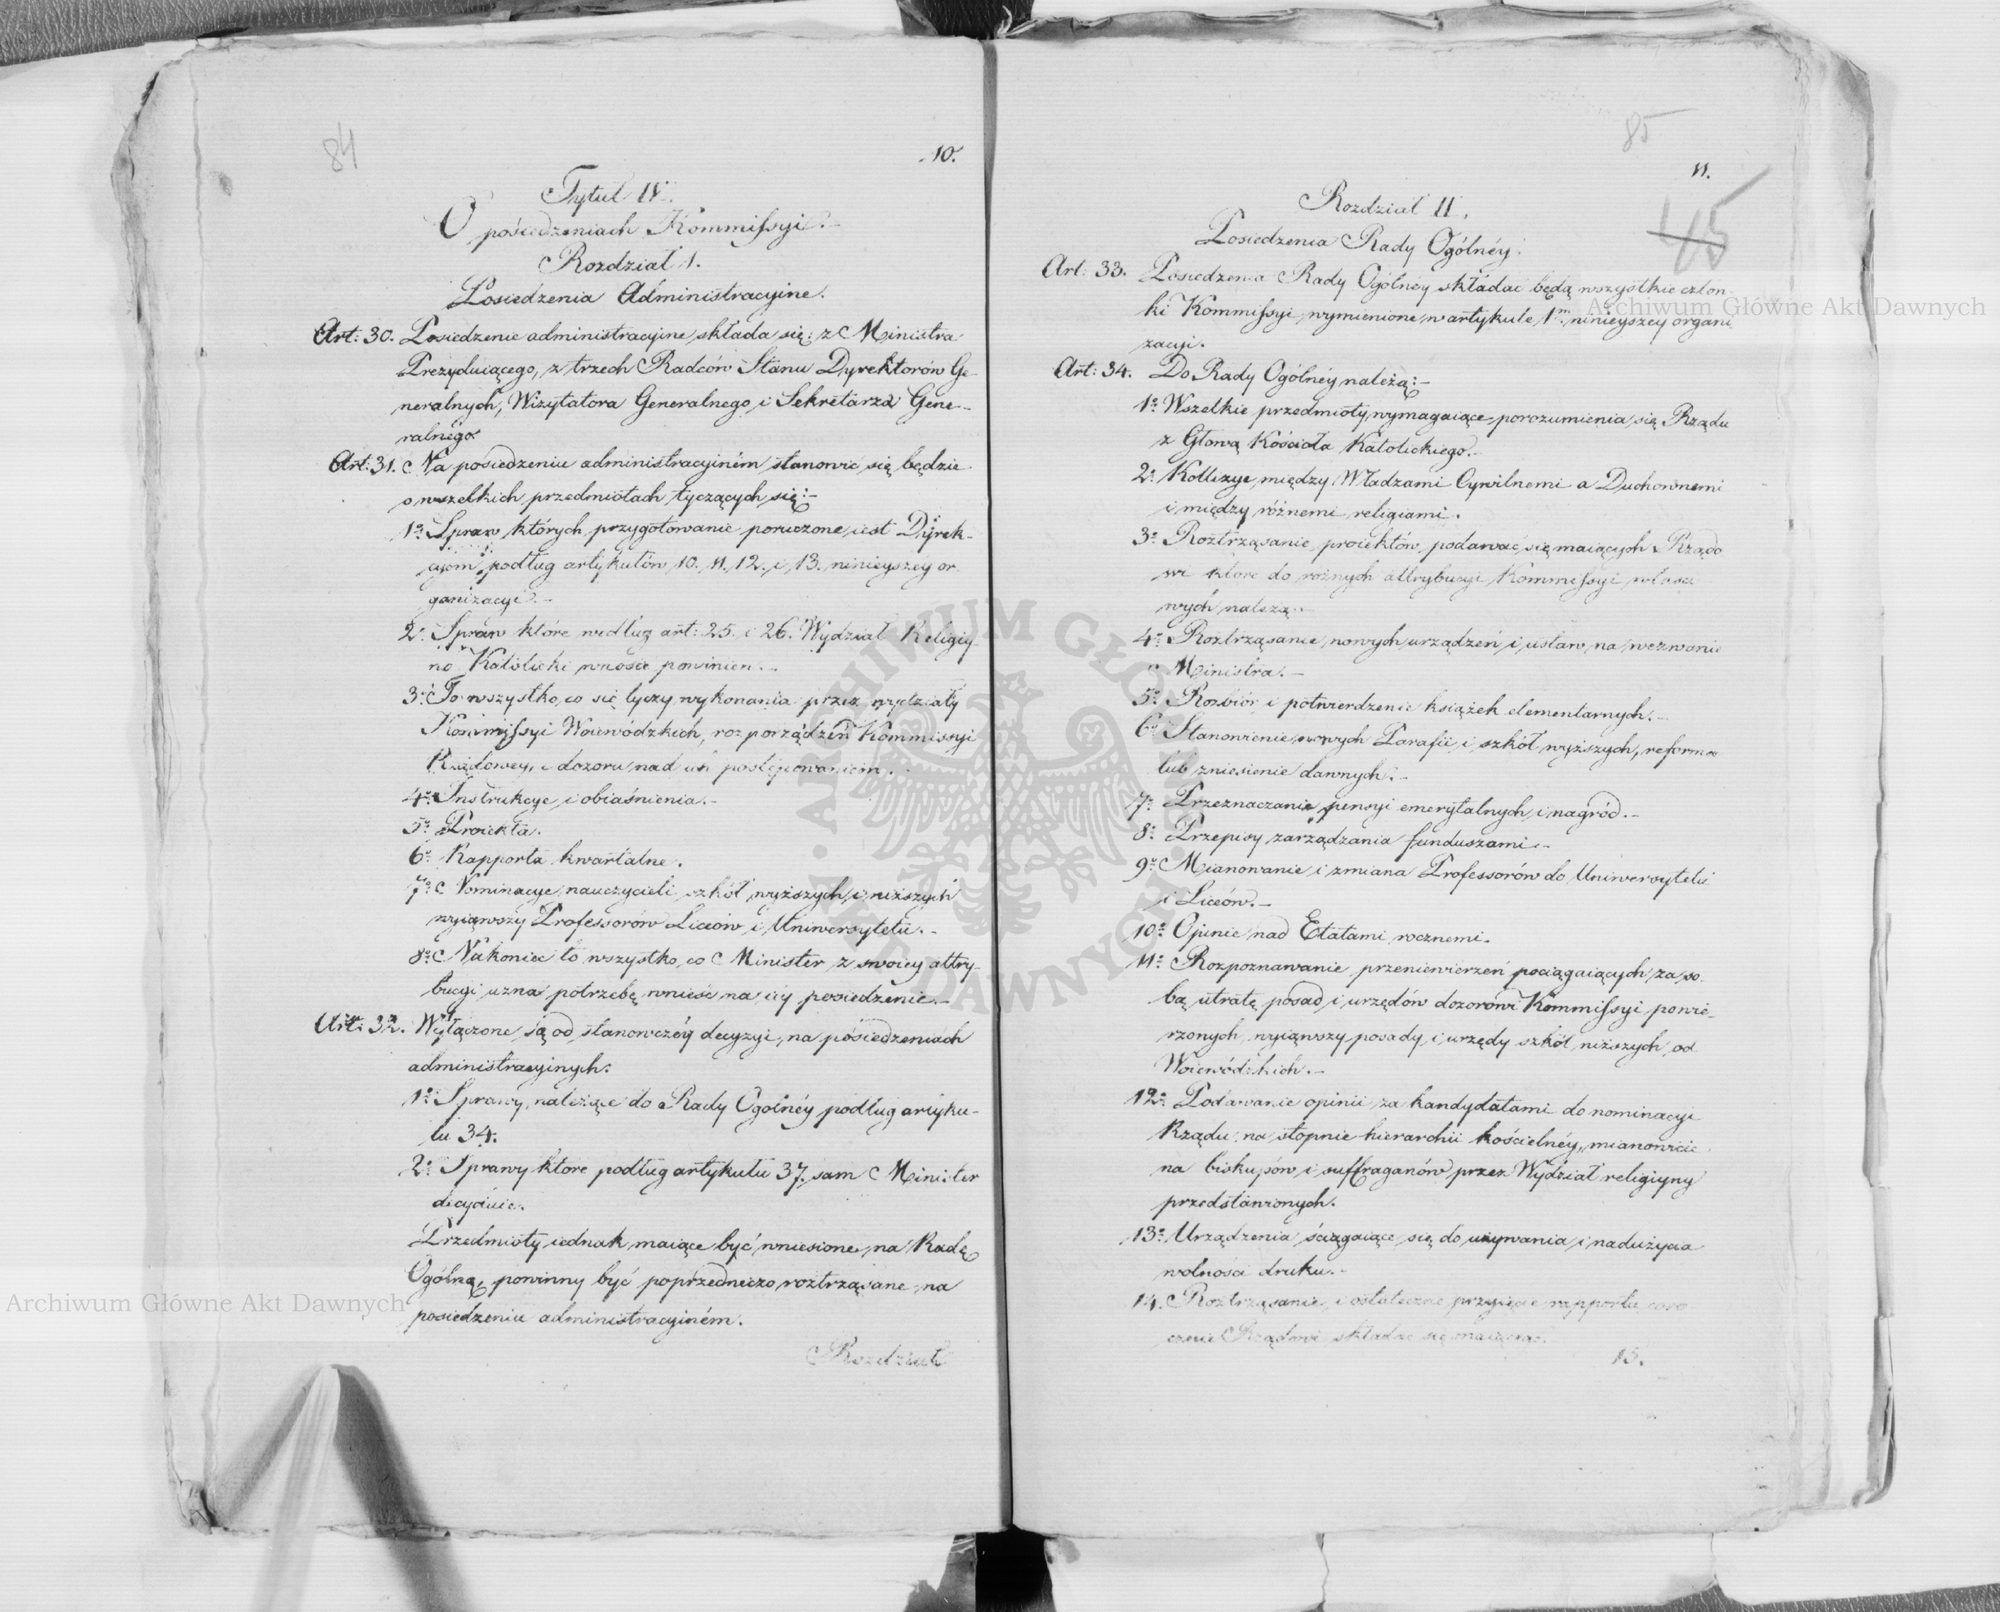 84
10.
Tytuł IV.
O posiedzeniach Kommissyi.
Rozdział I.
Posiedzenia Administracyine.
Art: 30. Posiedzenie administracyine składa się: z Ministra
Prezyduiącego, z trzech Radców Stanu Dyrektorów Ge-
neralnych, Wizytatora Generalnego i Sekretarza Gene-
ralnego.
Art: 31. Na posiedzeniu administracyiném stanowić się będzie
o wszelkich przedmiotach tyczących się:-
1º Spraw których przygotowanie poruczone iest Dyrek-
cyom podług artykułów 10. 11. 12. i 13. ninieyszey or
ganizacyi.-
2º Spraw które według art: 25. i 26. Wydział Religiy-
no Katolicki wnosić powinien.-
3º To wszystko, co się tyczy wykonania przez wydziały
Kommissyi Woiewódzkich, rozporządzeń Kommissyi
Rządowey, i dozoru nad ich postępowaniem.-
4º Instrukcye i obiaśnienia.-
5º Proiekta.
6º Rapporta kwartalne.
7º Nominacye nauczycieli szkół wyższych i niższych
wyiąwszy Professorów Liceów i Uniwersytetu.-
8º Nakoniec to wszystko, co Minister z swoiey attry-
bucyi uzna potrzebę wnieść na iéy posiedzenie.-
Art: 32. Wyłączone są od stanowczéy decyzyi, na posiedzeniach
administracyinych.
1º Sprawy należące do Rady Ogólnéy podług artyku-
łu 34.
2º Sprawy które podług artykułu 37. sam Minister
decyduie.
Przedmioty iednak maiące być wniesione na Radę
Ogólną, powinny być poprzedniczo roztrząsane na
posiedzeniu administracyiném.
Rozdział
85
11.
45
Rozdział II.
Posiedzenia Rady Ogólnéy.
Art: 33. Posiedzenia Rady Ogólnéy składać będą wszystkie człon-
ki Kommissyi wymienione w artykule 1m ninieyszey organi
zacyi.
Art: 34. Do Rady Ogólnéy należą:-
1º Wszelkie przedmioty wymagaiące porozumienia się Rządu
z Głową Kościoła Katolickiego.-
2º Kollizye między Władzami Cywilnemi a Duchownemi
i między różnemi religiami.
3º Roztrząsanie proiektów podawać się maiących Rządo
wi które do różnych attrybucyi Kommissyi właści
wych należą.-
4º Roztrząsanie nowych urządzeń i ustaw na wezwanie
Ministra.-
5º Rozbiór i potwierdzenie książek elementarnych.-
6º Stanowienie nowych Parafii i szkół wyższych, reforma
lub zniesienie dawnych.-
7º Przeznaczanie pensyi emerytalnych i nagród.-
8º Przepisy zarządzania funduszami.-
9º Mianowanie i zmiana Professorów do Uniwersytetu
i Liceów.-
10º Opinie nad Etatami rocznemi.
11º Rozpoznawanie przeniewierzeń pociągaiących za so
bą utratę posad i urzędów dozorowi Kommissyi powie-
rzonych, wyiąwszy posady i urzędy szkół niższych od
Woiewódzkich.-
12º Podawanie opinii za kandydatami do nominacyi
Rządu na stopnie hierarchii kościelnéy, mianowicie
na biskupów i suffraganów przez Wydział religiyny
przedstawionych.
13º Urządzenia ściągaiące się do używania i nadużycia
wolności druku.-
14. Roztrząsanie i ostateczne przyięcie rapportu coro
cznie Rządowi składać się maiącego.
15.
Archiwum Główne Akt Dawnych
Archiwum Główne Akt Dawnych
ARCHIWUM GŁÓWNE AKT DAWNYCH